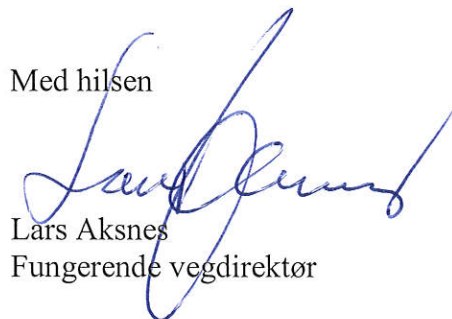 Med hilsen
Lars Aksnes
Fungerende vegdirektør